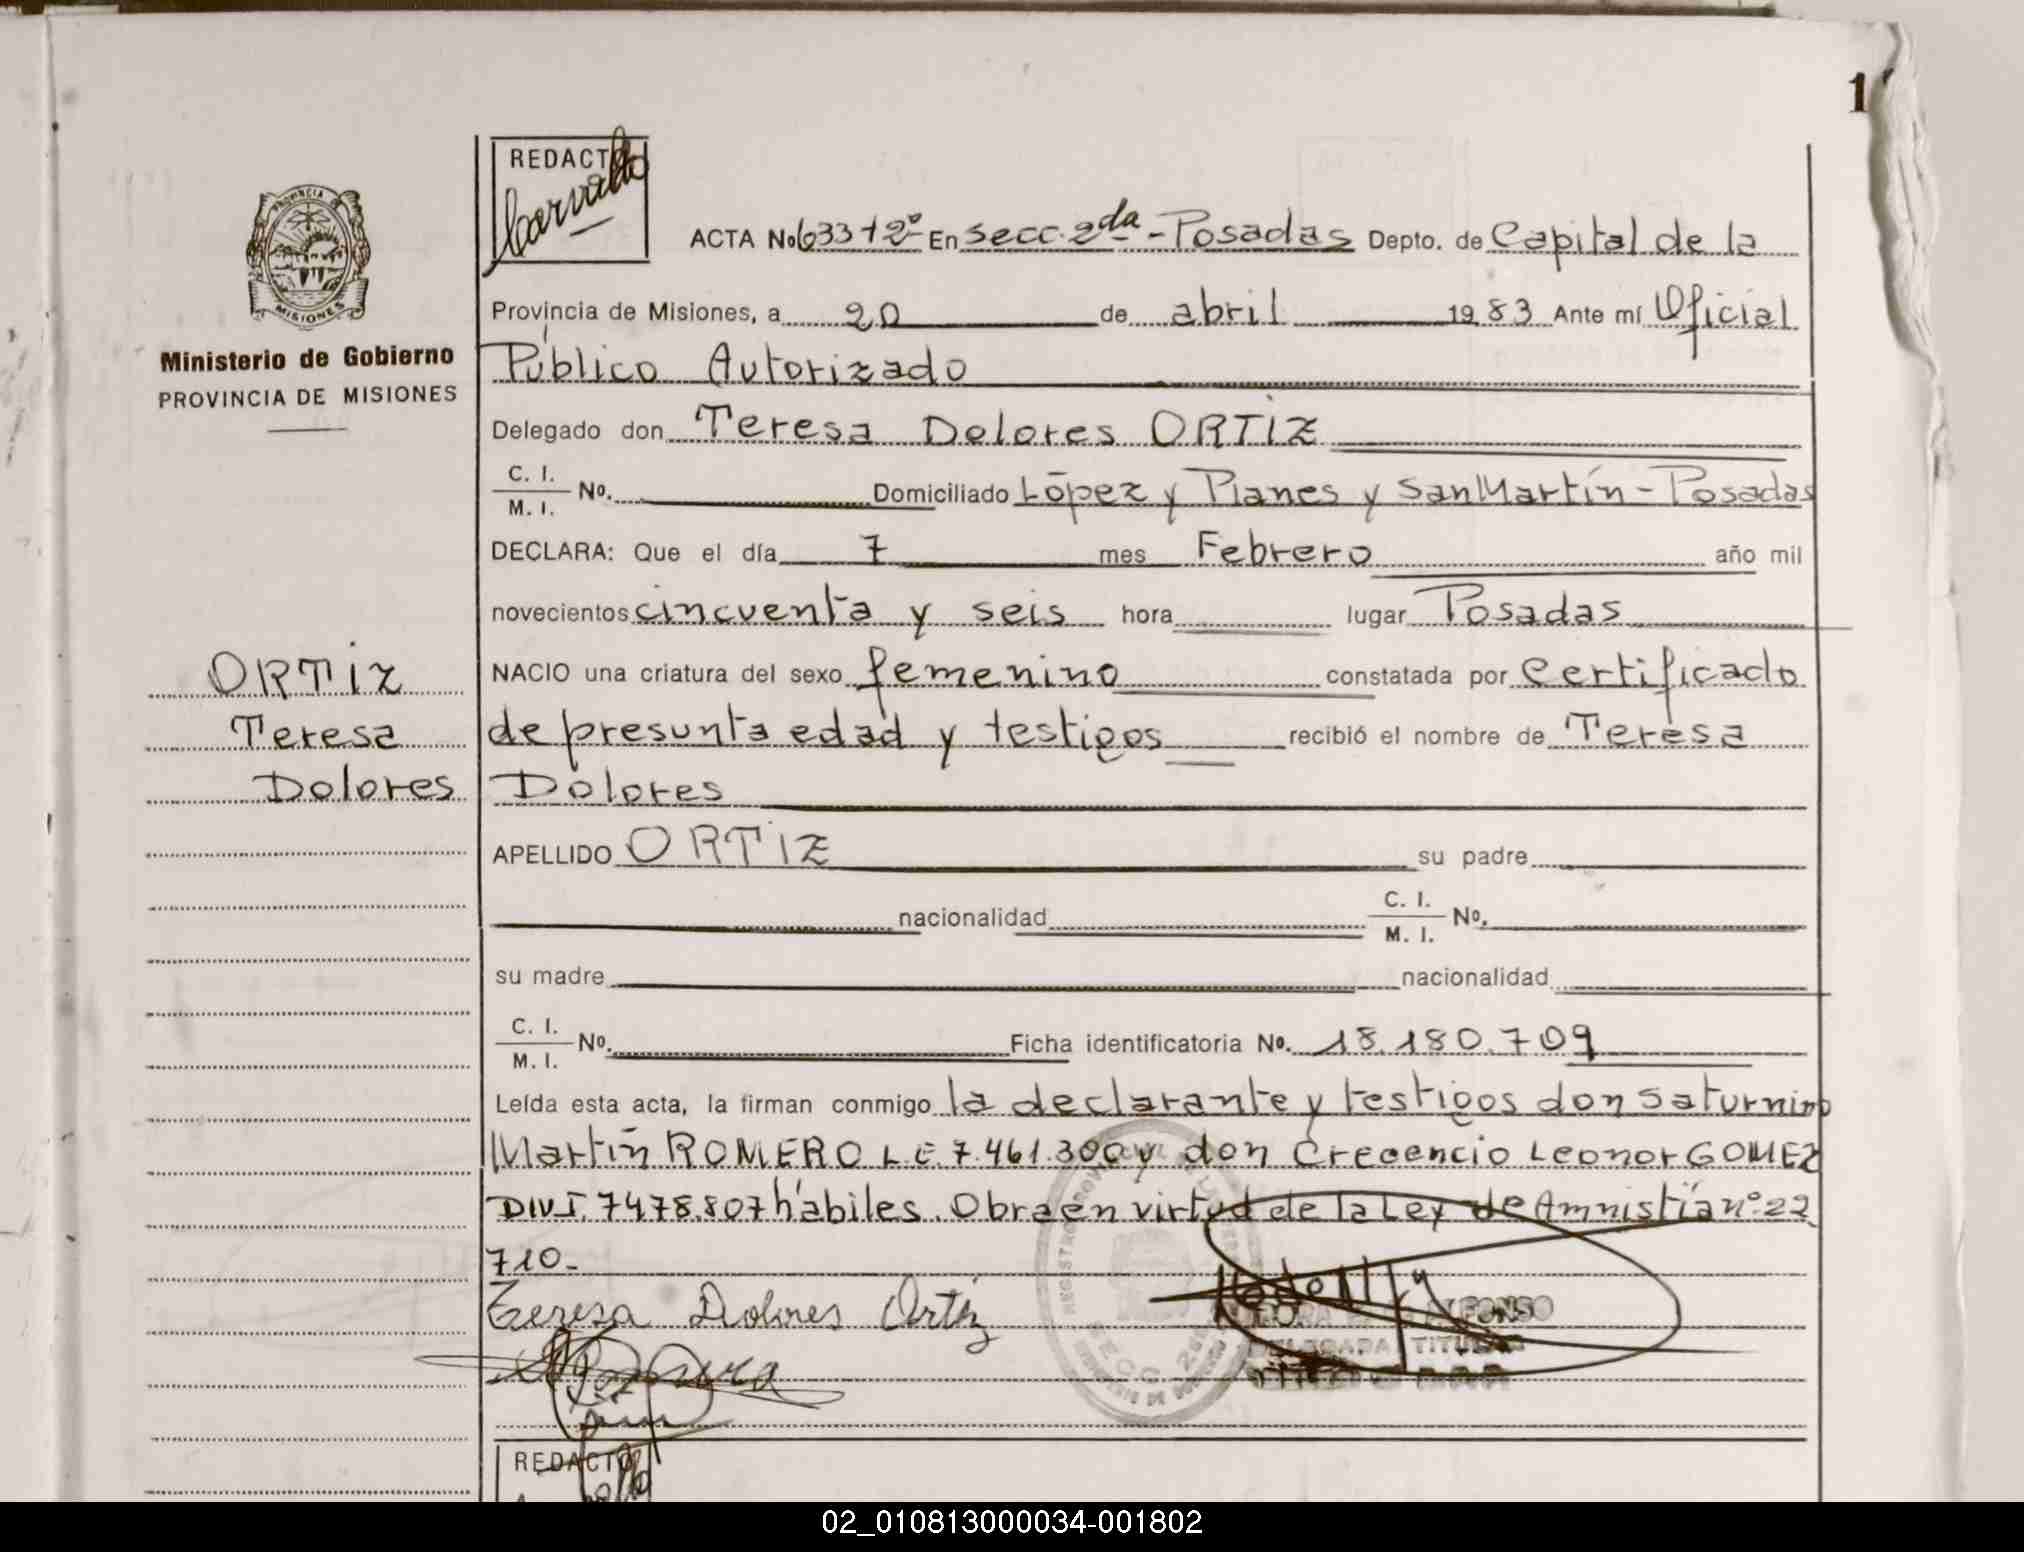 1
REDACTO
Carvallo
ACTA No 633 T2º En secc. 2da - Posadas Depto. de Capital de la
PROVINCIA
MISIONES
Provincia de Misiones, a 20 de abril 1983 Ante mí Oficial
Ministerio de Gobierno
Público Autorizado
PROVINCIA DE MISIONES
Delegado don Teresa Dolores ORTIZ
C. I.
M. I. No. Domiciliado López y Planes y San Martín - Posadas
DECLARA: Que el día 7 mes Febrero año mil
novecientos cincuenta y seis hora lugar Posadas
ORTIZ
NACIO una criatura del sexo femenino constatada por Certificado
Teresa
de presunta edad y testigos recibió el nombre de Teresa
Dolores
Dolores
APELLIDO ORTIZ su padre
nacionalidad C. I.
M. I. No.
su madre nacionalidad
C. I.
M. I. No. Ficha identificatoria No. 18.180.709
Leída esta acta, la firman conmigo la declarante y testigos don Saturnino
Martín ROMERO L E 7.461.300 y don Crecencio Leonor GOMEZ
DNI. 7478.807 hábiles. Obra en virtud de la Ley de Amnistía nº 22
710-
Teresa Dolores Ortiz
ALFONSO
DELEGADA TITULAR
SECC. 2da
REDACTO
02_010813000034-001802